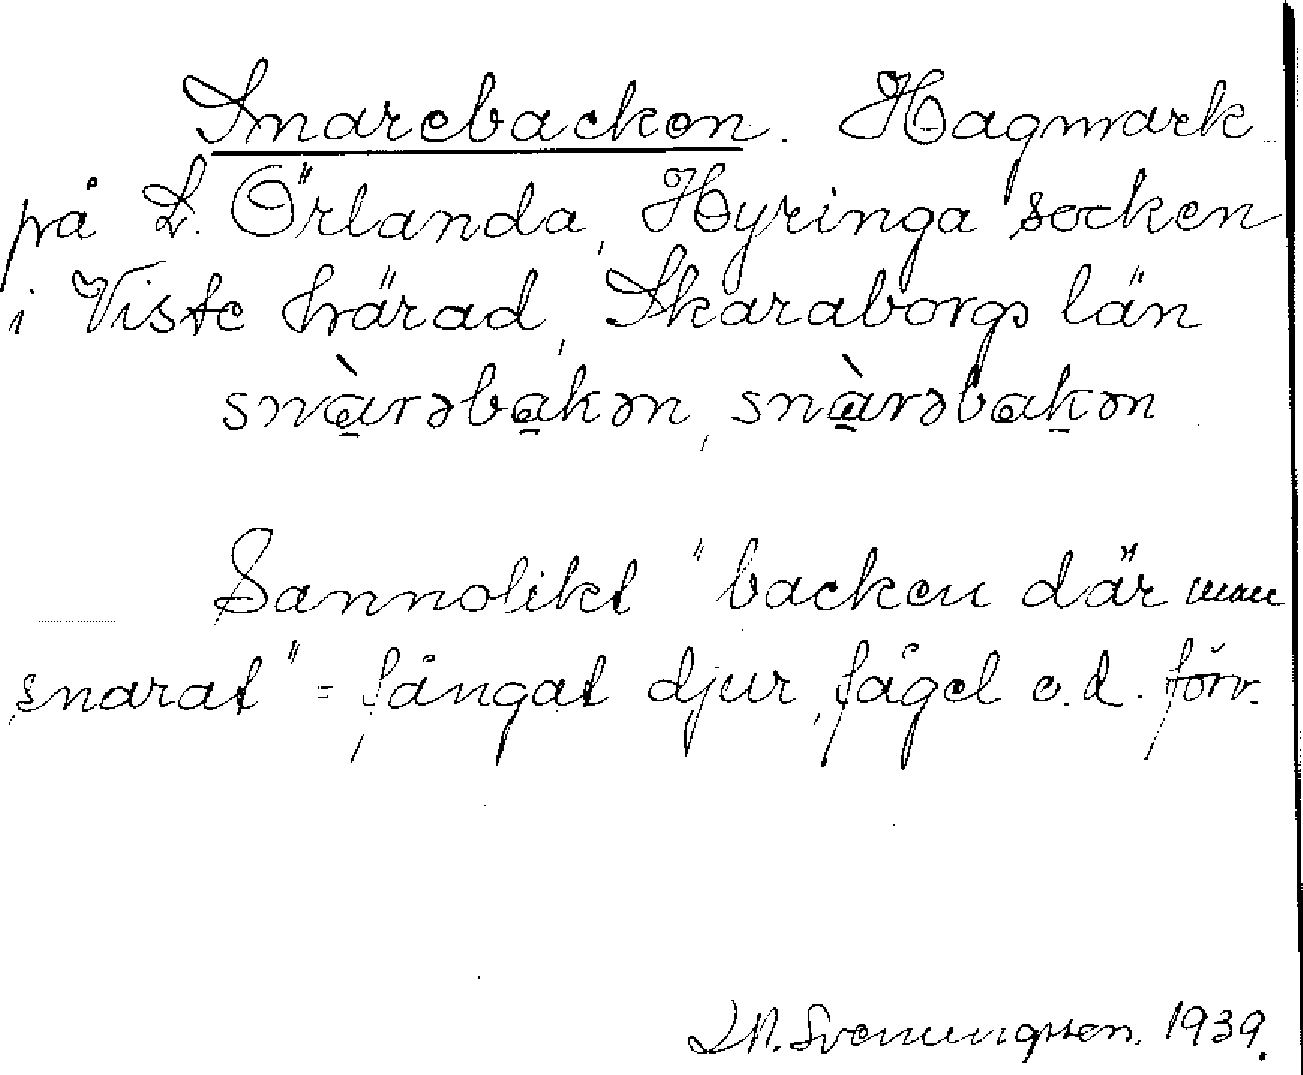 Snarebacken. Hagmark
på L. Örlanda, Hyringa socken
i Viste härad, Skaraborgs län
snàrəbakən, snàrəbakən
Sannolikt "backen där man
snarat" = fångat djur, fågel o.d. förv.
Svenungsson. 1939.